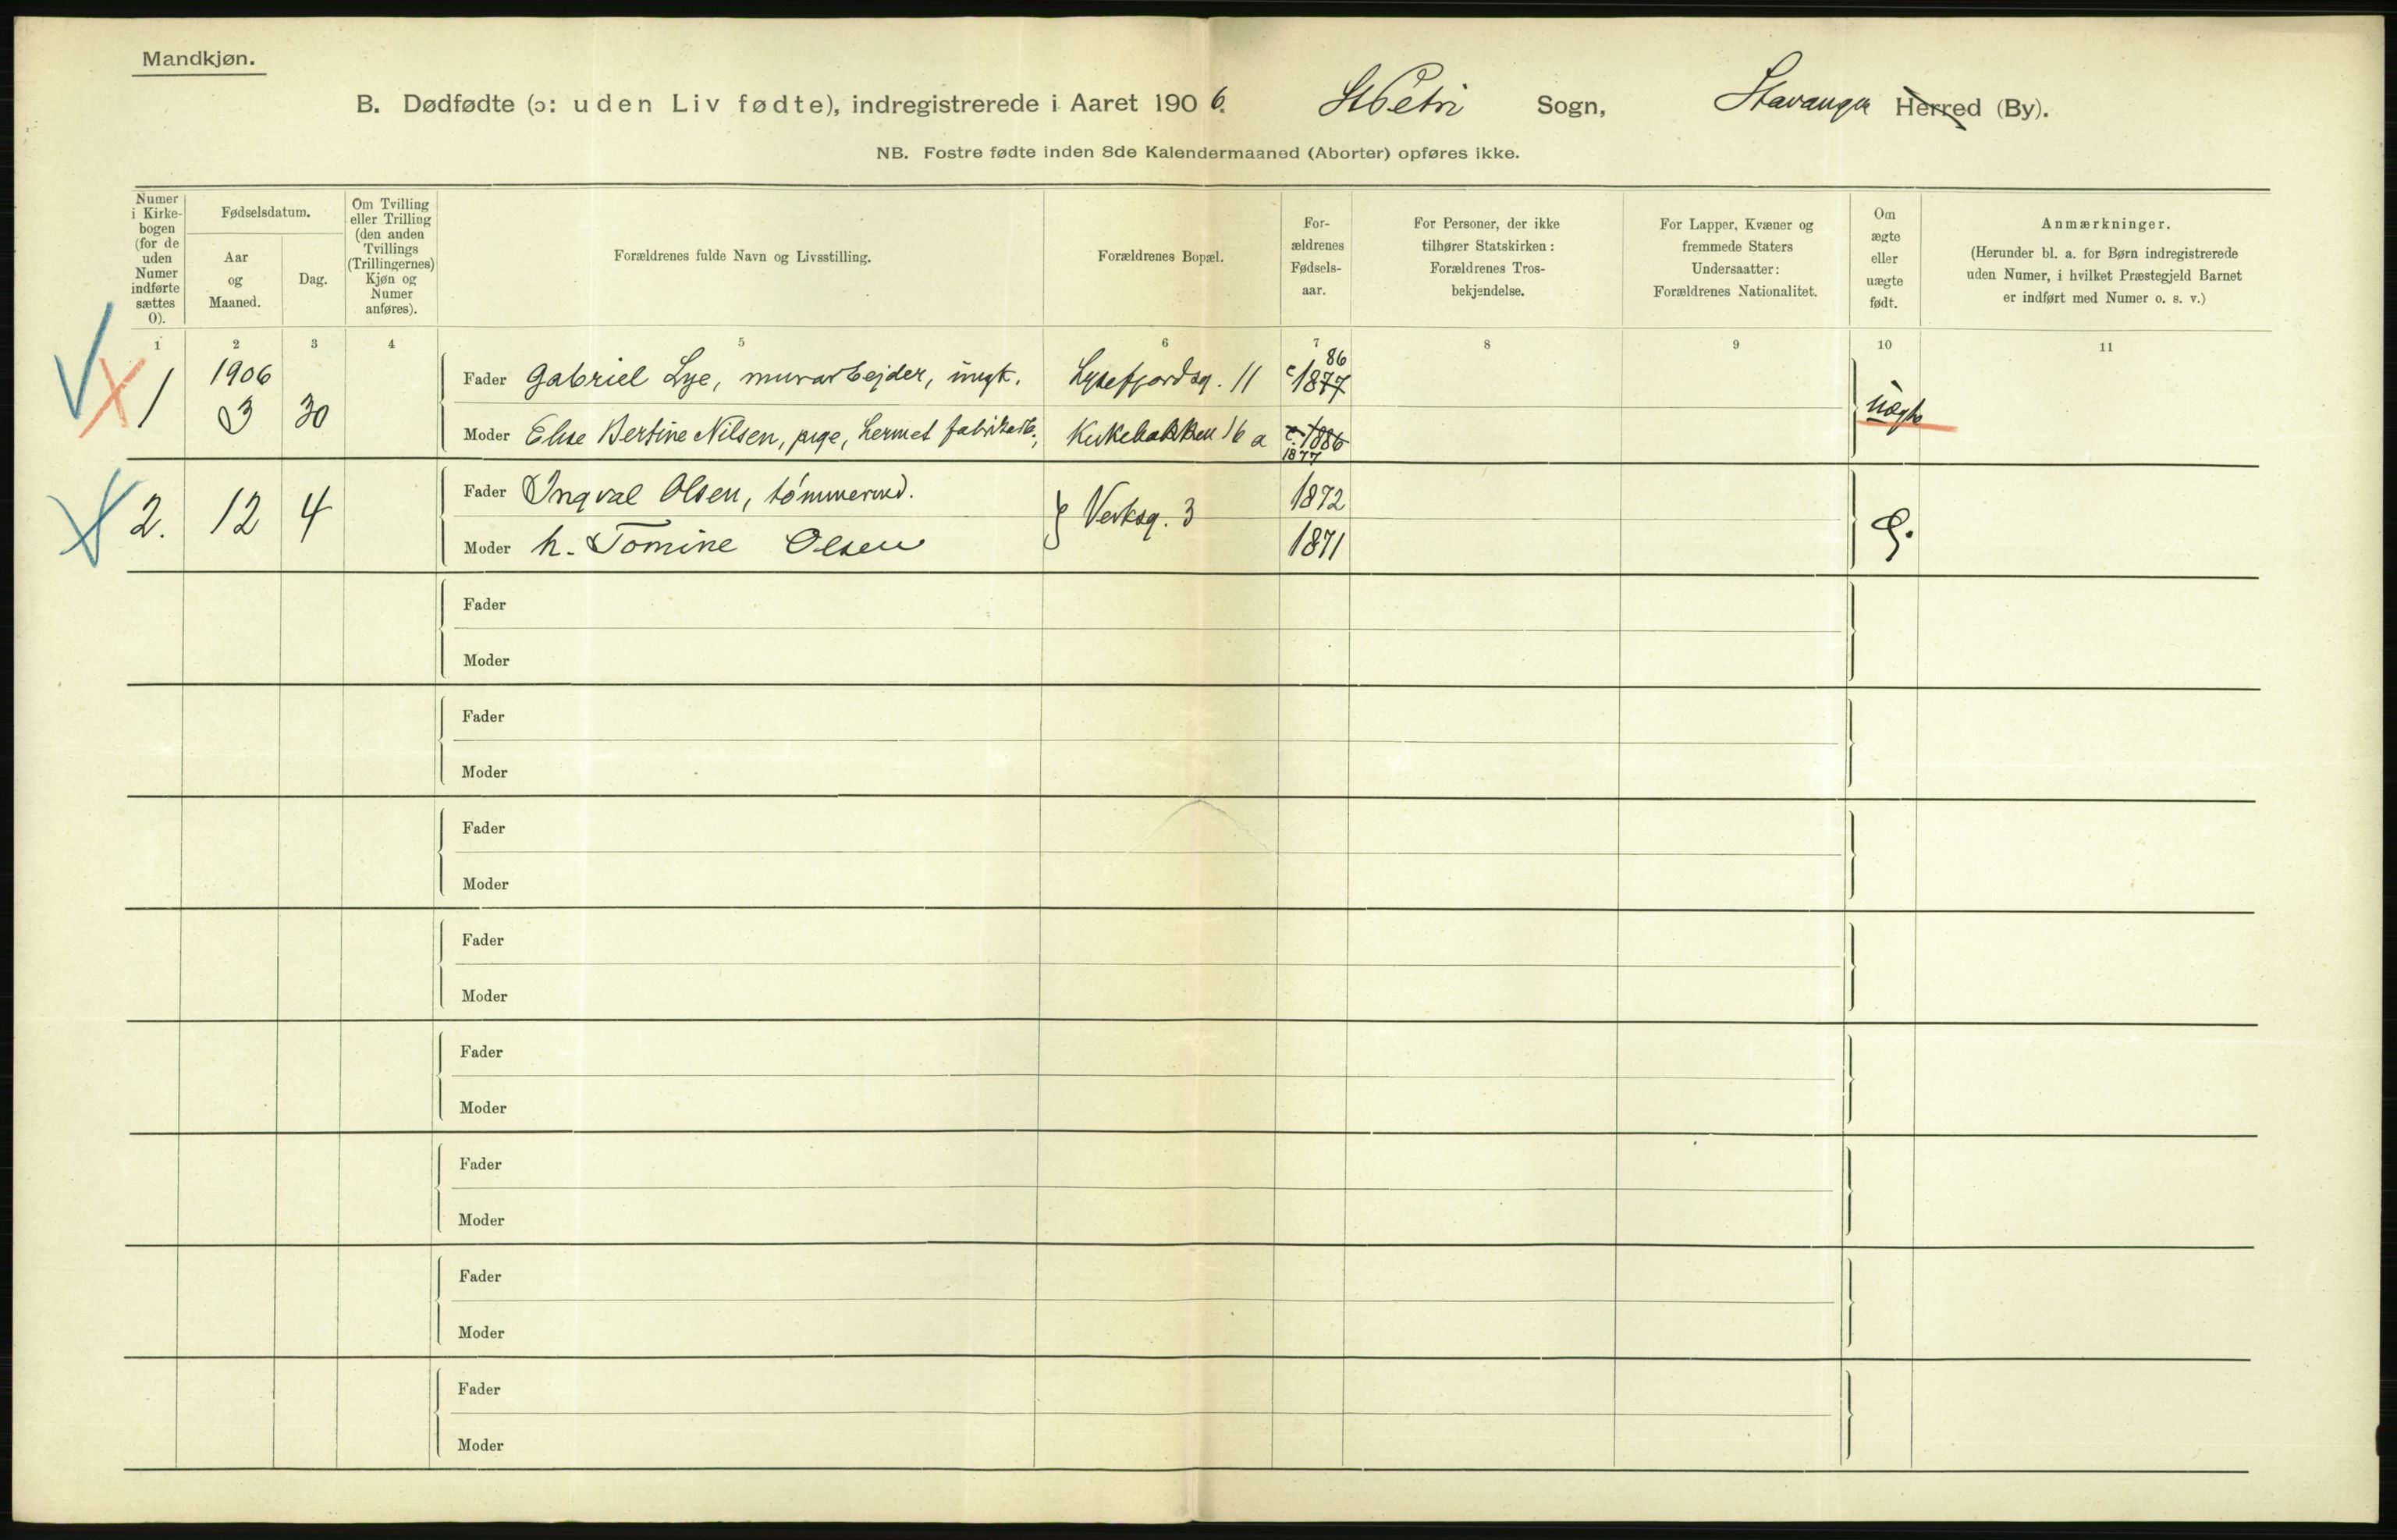 Mandkjøn.
B. Dødfødte (ɔ: uden Liv fødte), indregistrerede i Aaret 1906. St Petri Sogn, Stavanger Herred (By).
NB. Fostre fødte inden 8de Kalendermaaned (Aborter) opføres ikke.
Numer i Kirke-bogen (for de uden Numer indførte sættes 0).
Fødselsdatum.
Aar og Maaned.
Dag.
Om Tvilling eller Trilling (den anden Tvillings (Trillingernes) Kjøn og Numer anføres).
Forældrenes fulde Navn og Livsstilling.
Forældrenes Bopæl.
For-ældrenes Fødsels-aar.
For Personer, der ikke tilhører Statskirken: Forældrenes Tros-bekjendelse.
For Lapper, Kvæner og fremmede Staters Undersaatter: Forældrenes Nationalitet.
Om ægte eller uægte født.
Anmærkninger.
(Herunder bl. a. for Børn indregistrerede uden Numer, i hvilket Præstegjeld Barnet er indført med Numer o. s. v.)
1 2 3 4 5 6 7 8 9 10 11
1 1906 3 30 Fader Gabriel Lye, murarbejder, ungk. Lysefjordsg. 11 c 1877 86 uægte
Moder Elise Bertine Nilsen, pige, hermet fabrikarb., Kirkebakken 16 a c. 1886 1877
2. 12 4 Fader Ingval Olsen, tømmermd. Verksg. 3 1872
Moder h. Tomine Olsen 1871
Fader
Moder
Fader
Moder
Fader
Moder
Fader
Moder
Fader
Moder
Fader
Moder
Fader
Moder
Fader
Moder